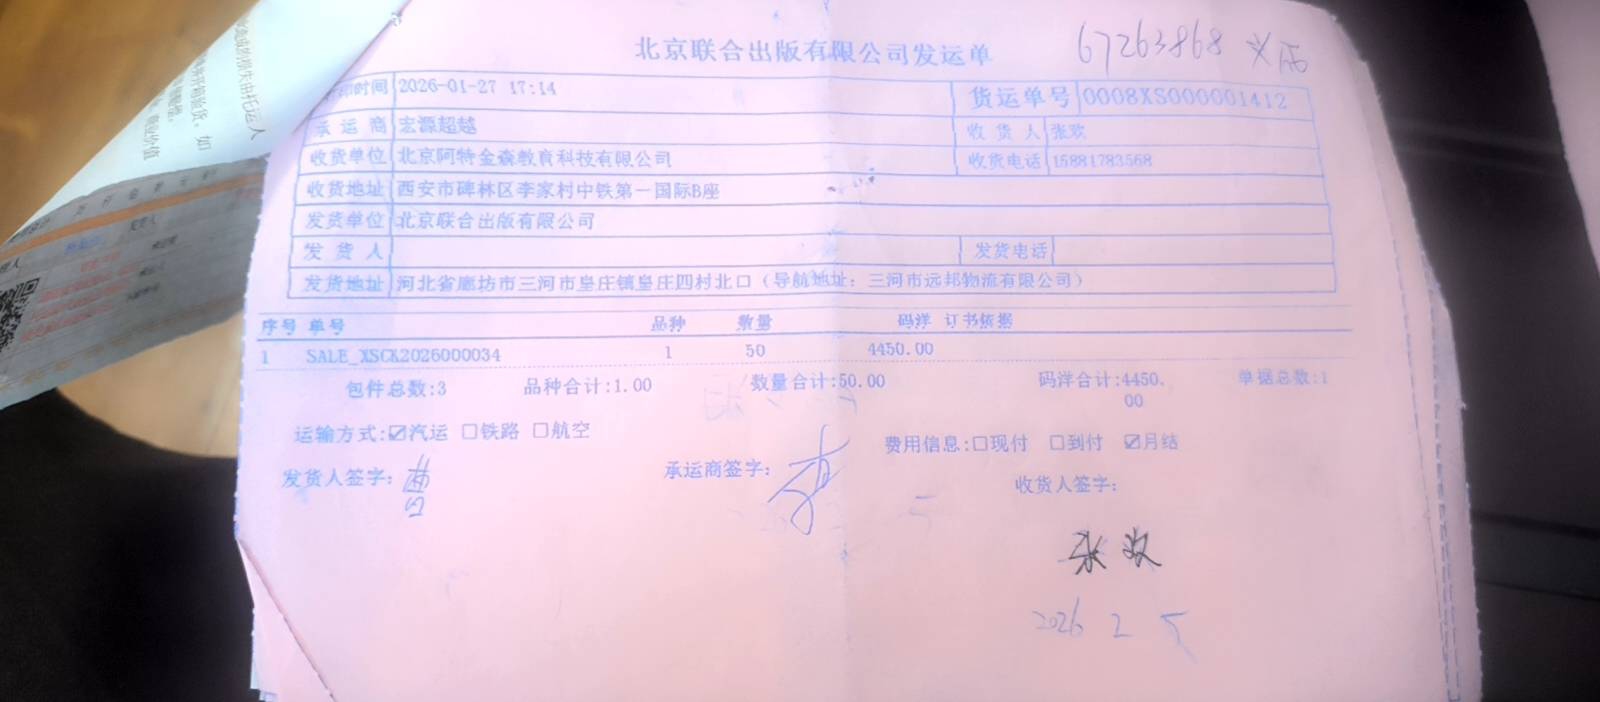 北京联合出版有限公司发运单
67263868
印时间 2026-01-27 17:14 货运单号 0008XS000001412
承运商 宏源超越 收货人 张欢
收货单位 北京阿特金森教育科技有限公司 收货电话 15881783568
收货地址 西安市碑林区李家村中铁第一国际B座
发货单位 北京联合出版有限公司
发货人 发货电话
发货地址 河北省廊坊市三河市皇庄镇皇庄四村北口（导航地址：三河市远邦物流有限公司）
序号 单号 品种 数量 码洋 订书依据
1 SALE_XSCK2026000034 1 50 4450.00
包件总数:3 品种合计:1.00 数量合计:50.00 码洋合计:4450.00 单据总数:1
运输方式:☑汽运 □铁路 □航空 费用信息:□现付 □到付 ☑月结
发货人签字: 曹 承运商签字: 收货人签字:
张欢
2026 2 5